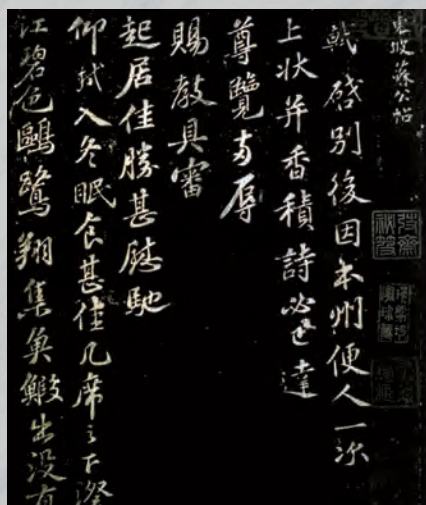 東坡蘇公帖
軾啓別後因本州便人一次
上狀并香積詩必已達
尊覽玄辱
賜教具審
起居佳勝甚慰馳
仰軾入冬眠食甚佳几席之下澄
江碧色鷗鷺翔集魚鰕出没有